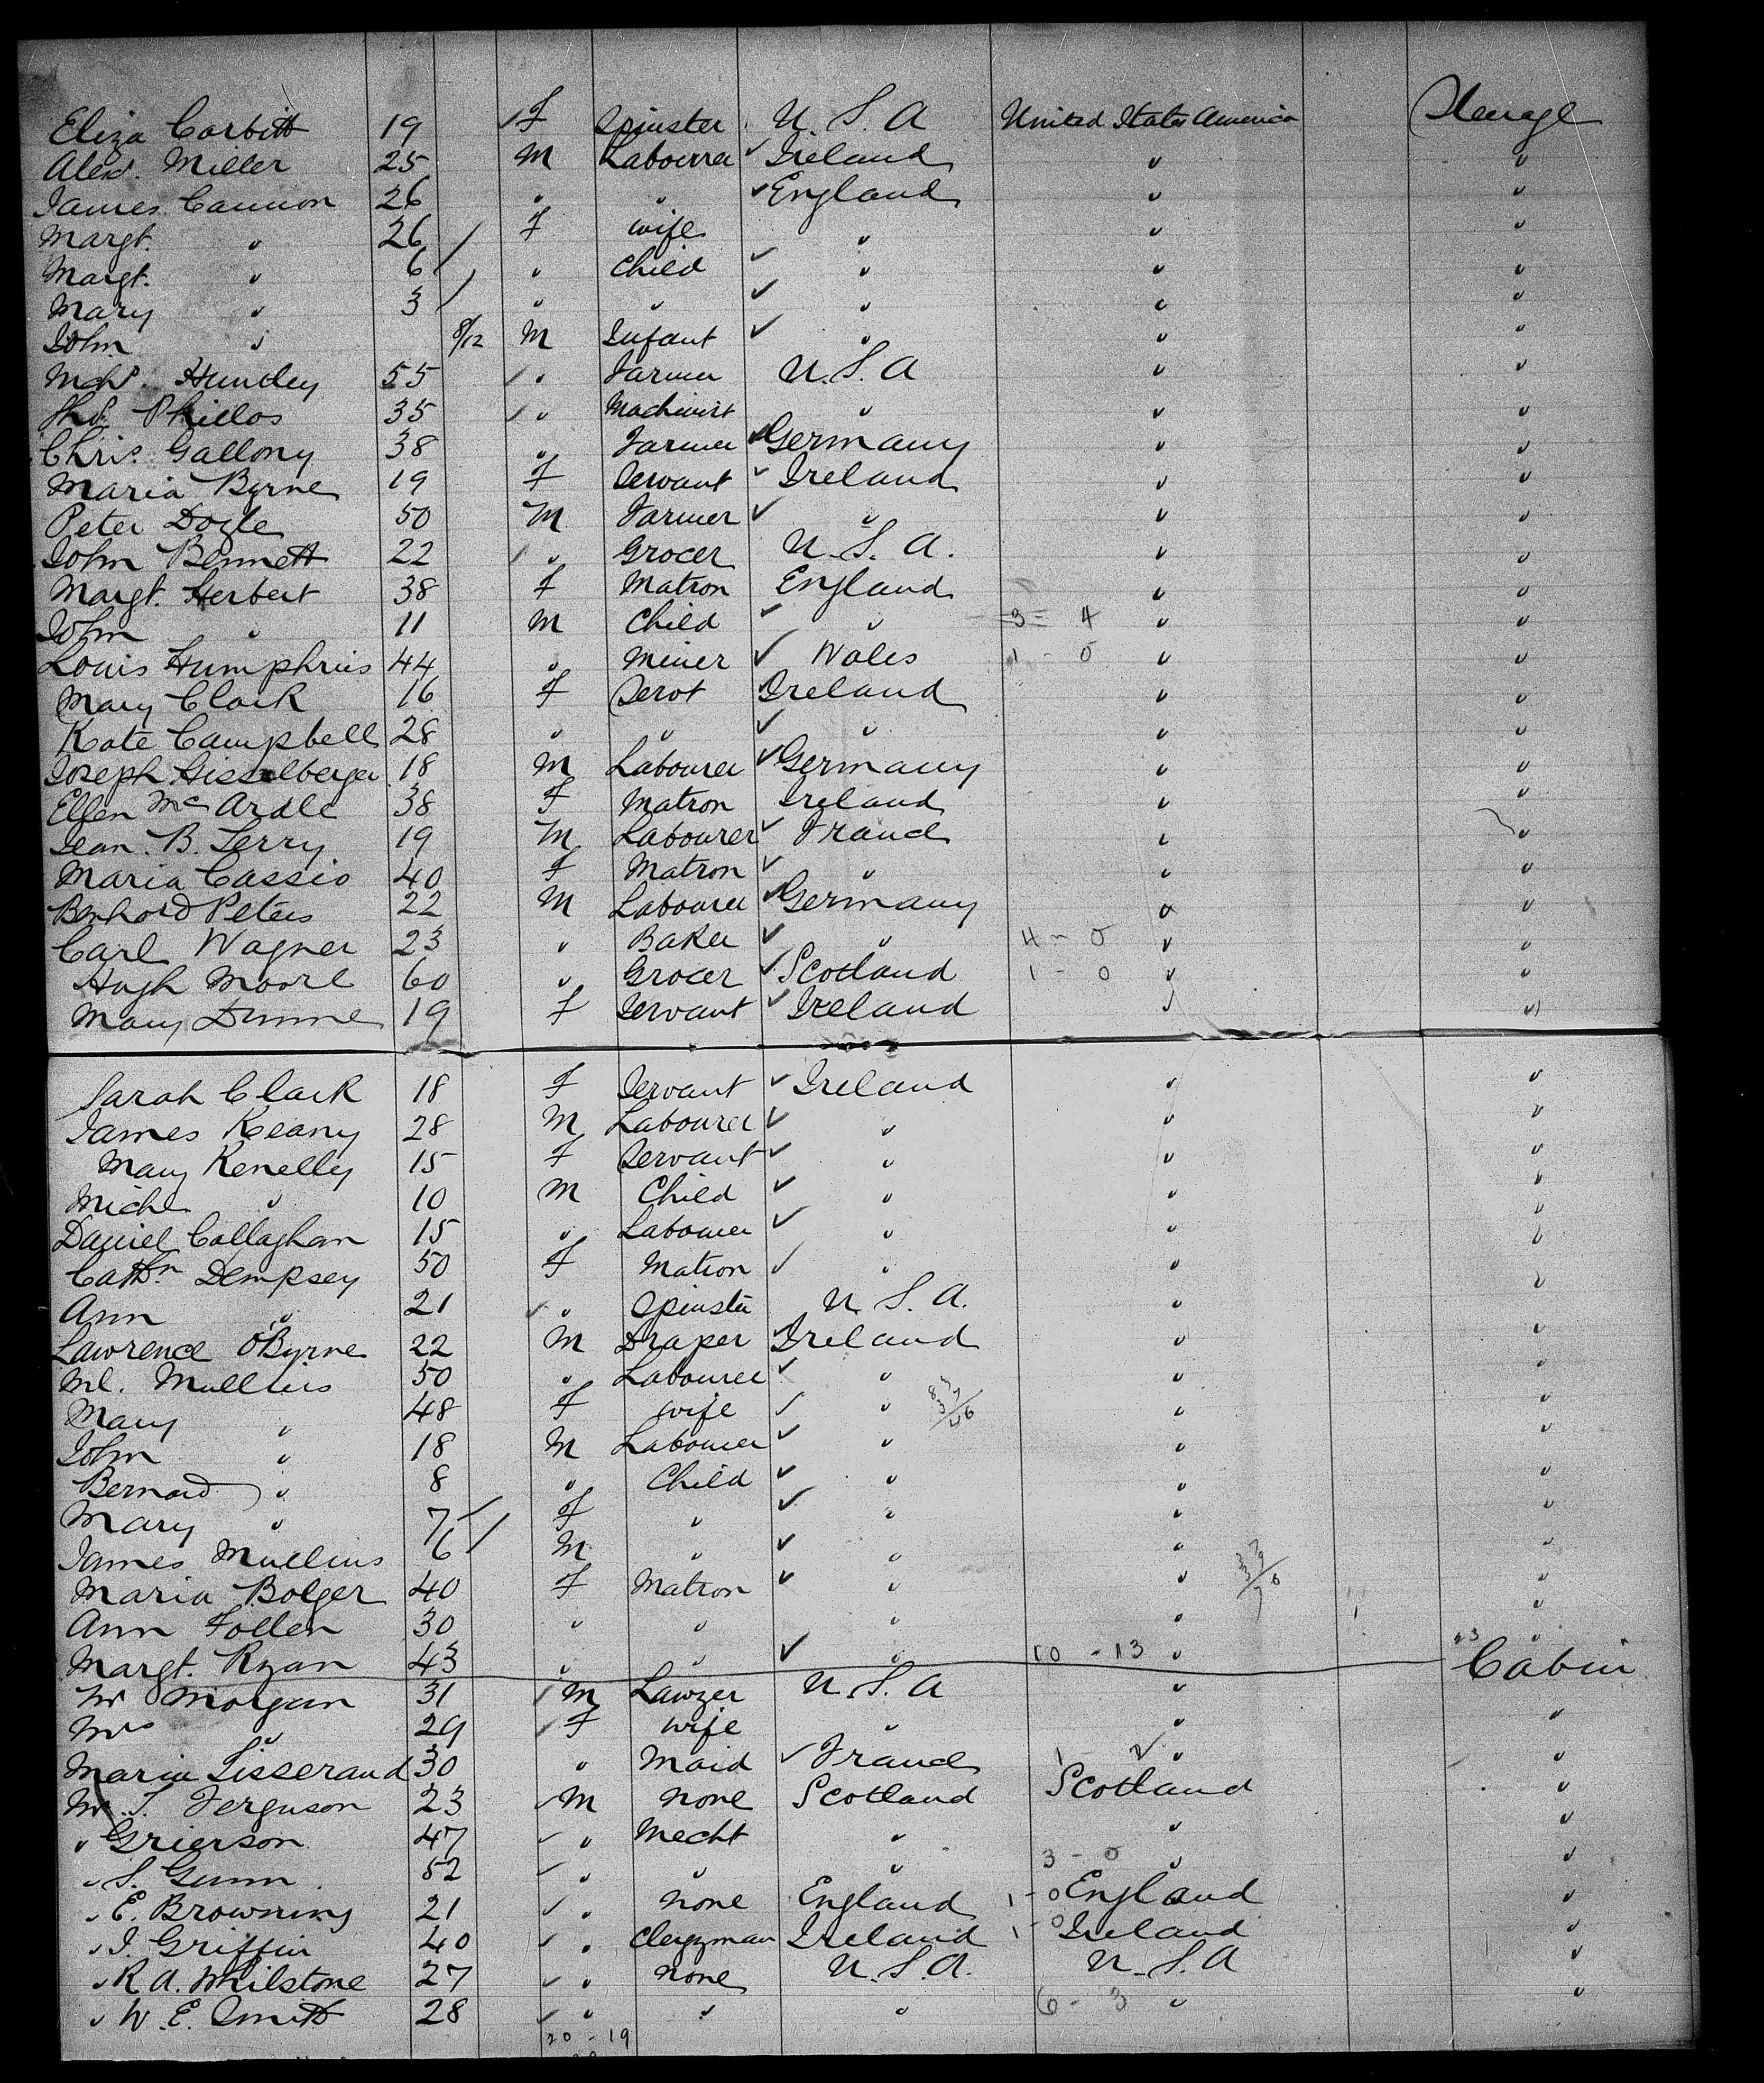 Eliza Corbitt 19 F Spinster U.S.A United States America Steerage
Alexd. Miller 25 M Labourer Ireland " "
James Cannon 26 " " England " "
Margt. " 26 F wife " " "
Margt. " 6 " Child " " "
Mary " 3 " " " " "
John " 8/12 M Infant " " "
Huntley 55 " Farmer U.S.A " "
35 " Machinist " " "
Chris. Gallony 38 " Farmer Germany " "
Maria Byrne 19 F Servant Ireland " "
Peter Doyle 50 M Farmer " " "
John Bennett 22 " Grocer U.S.A. " "
Margt. Herbert 38 F Matron England " "
John " 11 M Child " 3 - 4 " "
Louis Humphries 44 " Miner Wales 1 - 0 " "
Mary Clark 16 F Servt Ireland " "
Kate Campbell 28 " " " " "
Joseph Gisselberger 18 M Labourer Germany " "
Ellen McArdle 38 F Matron Ireland " "
Jean. B. Terry 19 M Labourer France " "
Maria Cassio 40 F Matron " " "
Bernhard Peters 22 M Labourer Germany " "
Carl Wagner 23 " Baker " 4 - 0 " "
Hugh Moore 60 " Grocer Scotland 1 - 0 " "
Mary Dunne 19 F Servant Ireland " "
Sarah Clark 18 F Servant Ireland " "
James Keany 28 M Labourer " " "
Mary Kenelly 15 F Servant " " "
Michl " 10 M Child " " "
Daniel Callaghan 15 " Labourer " " "
Cathn Dempsey 50 F Matron " " "
Ann " 21 " Spinster U.S.A. " "
Lawrence O'Byrne 22 M Draper Ireland " "
Ml. Mullins 50 " Labourer " " "
Mary " 48 F wife " " "
John " 18 M Labourer " " "
Bernard " 8 " Child " " "
Mary " 7 F " " " "
James Mullins 6 M " " " "
Maria Bolger 40 F Matron " " "
Ann Follen 30 " " " " "
Margt. Ryan 43 " " " 10 - 13 " "
Mr Morgan 31 M Lawyer U.S.A " Cabin
Mrs " 29 F wife " " "
Maria Tisserand 30 " Maid France " "
Mr. T. Ferguson 23 M None Scotland Scotland "
" Grierson 47 " Mecht " " "
" S. Gunn. 52 " " " 3 - 0 " "
" E. Browning 21 " None England 1 - 0 England "
" J. Griffin 40 " Clergyman Ireland 1 - 0 Ireland "
" R.A. Milstone 27 " None U.S.A. U.S.A "
" W.E. Smith 28 " " " 6 - 3 " "
20 - 19